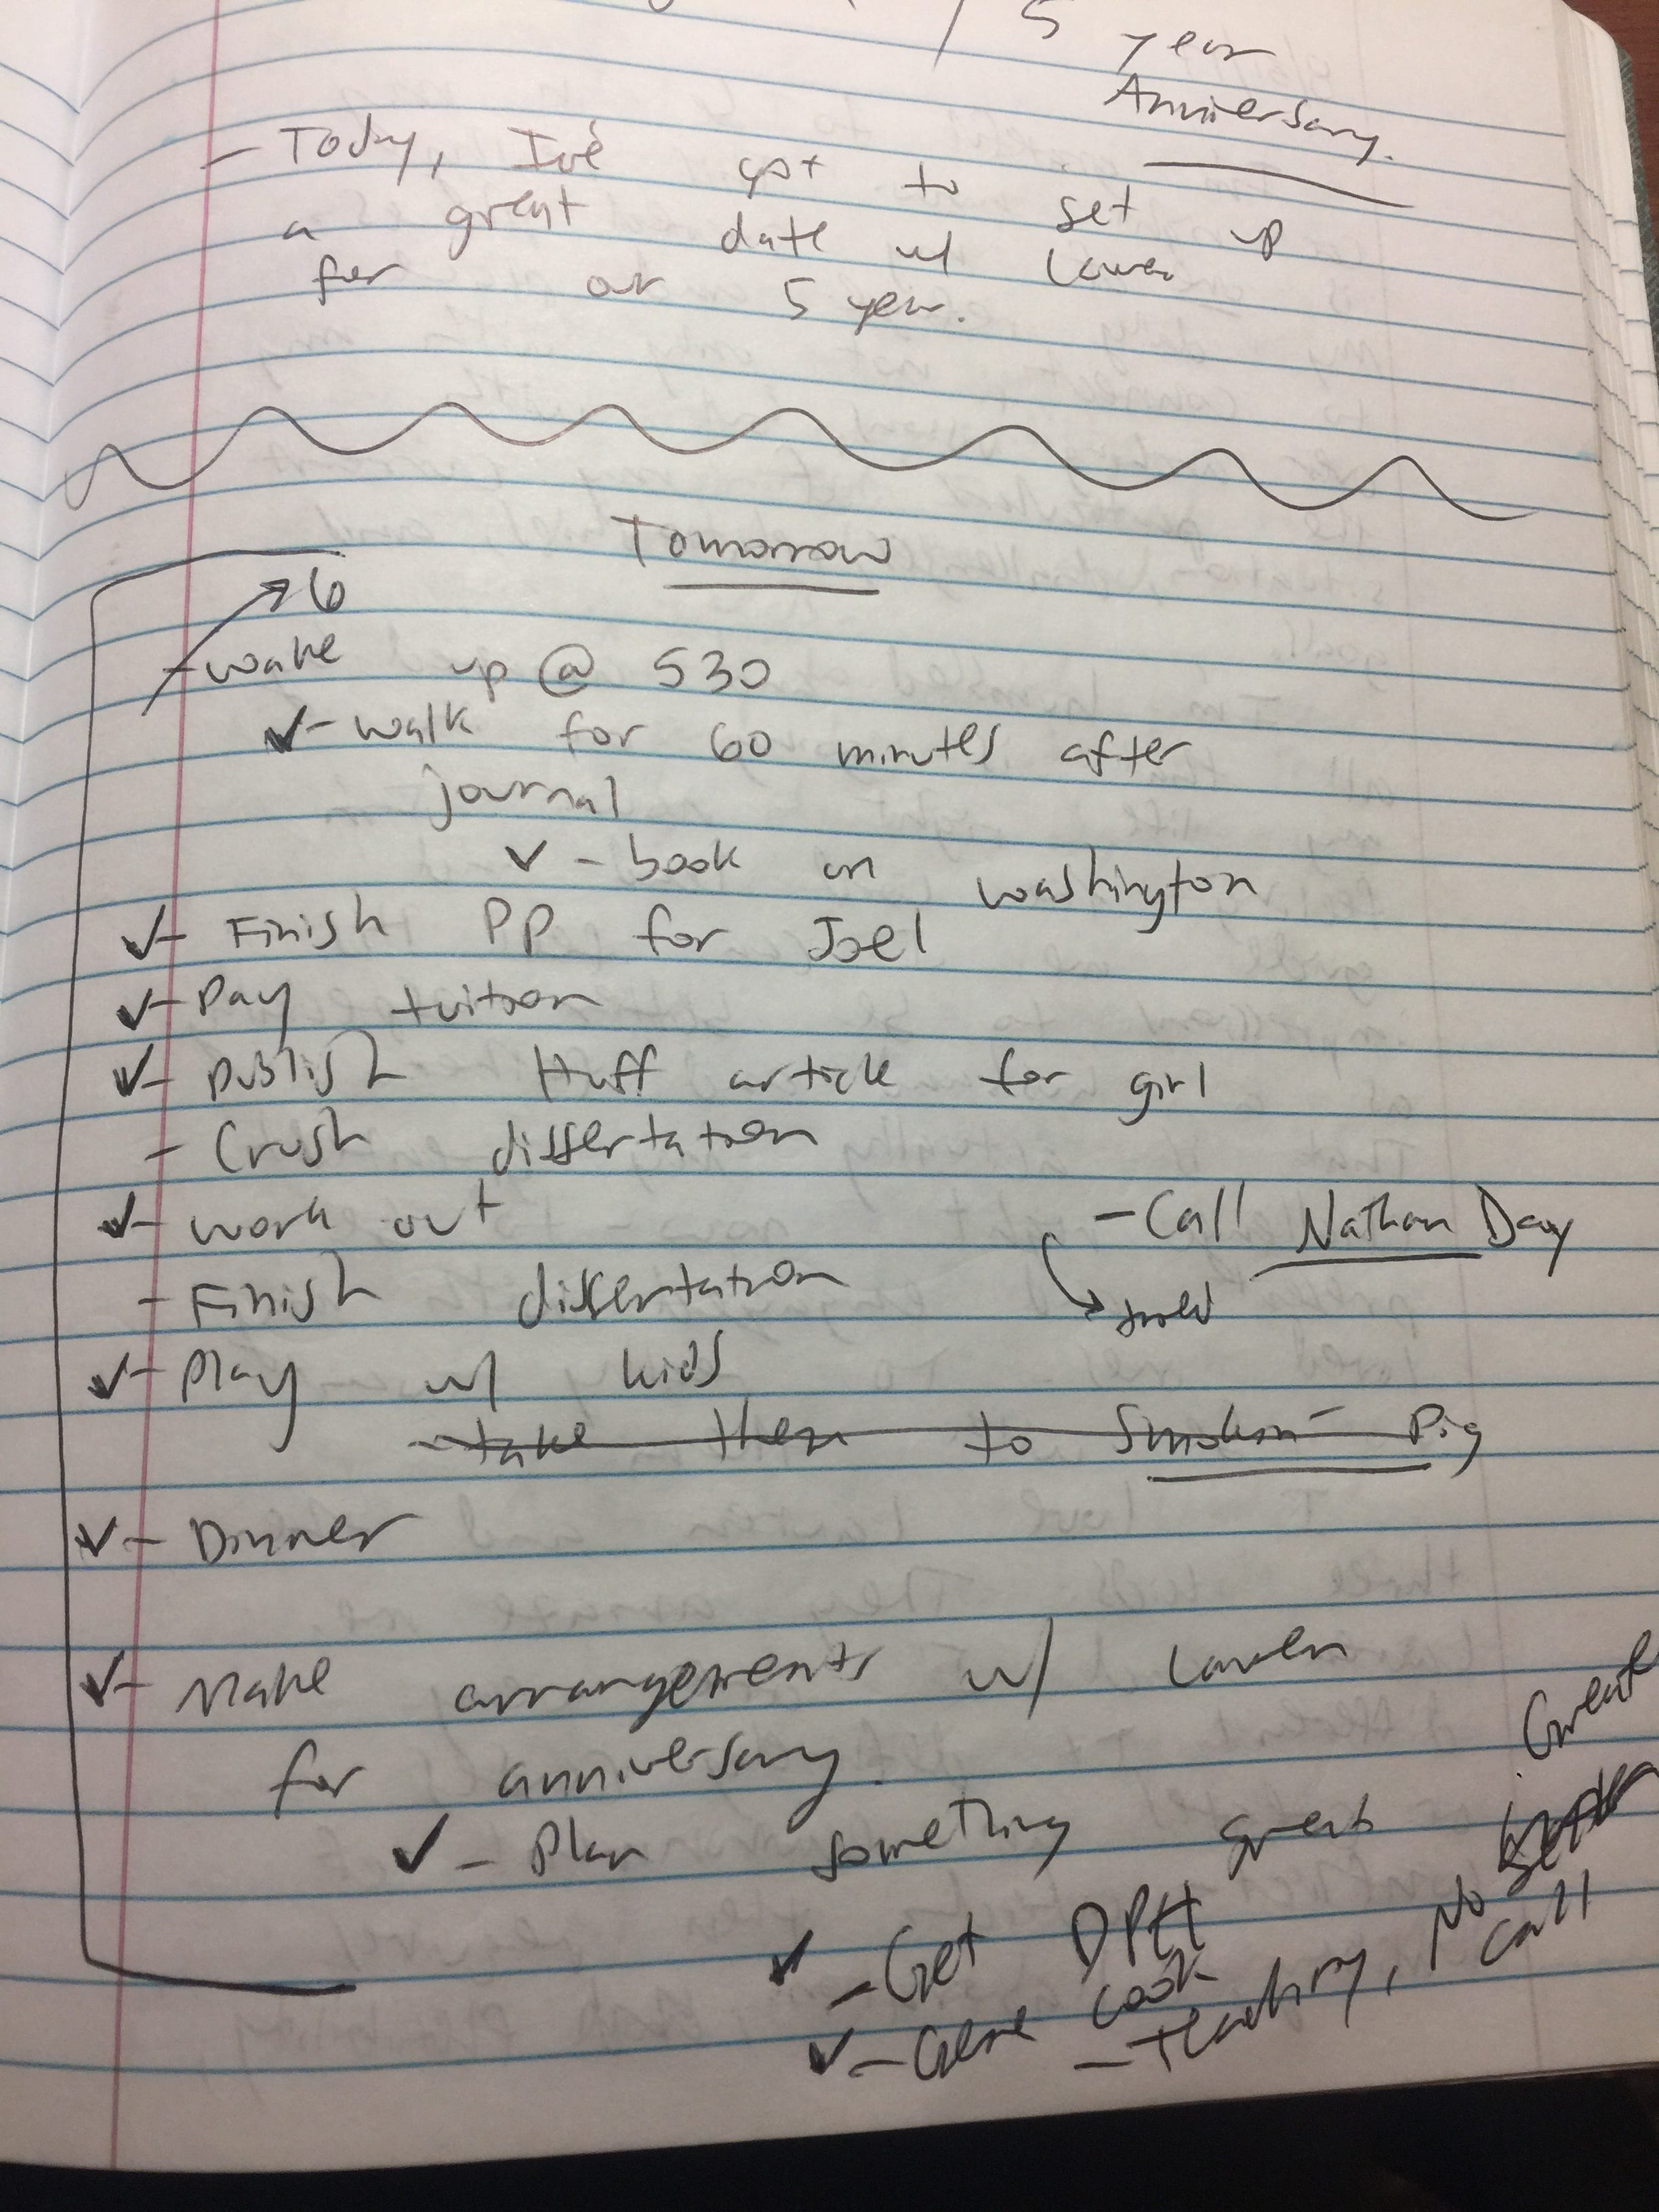 5 year
Anniversary.
- Today, I've got to set up
a great date w/ Lauren
for our 5 year.
Tomorrow
6
- wake up @ 530
✓ - walk for 60 minutes after
journal
✓ - book on Washington
✓ - Finish PP for Joel
✓ - Pay tuition
✓ - Publish Huff article for girl
- Crush dissertation
✓ - work out
- Call Nathan Day
- Finish dissertation
✓ - Play w/ kids
- take them to Smokin' Pig
✓ - Dinner
✓ - Make arrangements w/ Lauren
for anniversary.
✓ - Plan something great
✓ - Get DPH
✓ - Gene Cook
- teaching, No
call
Great